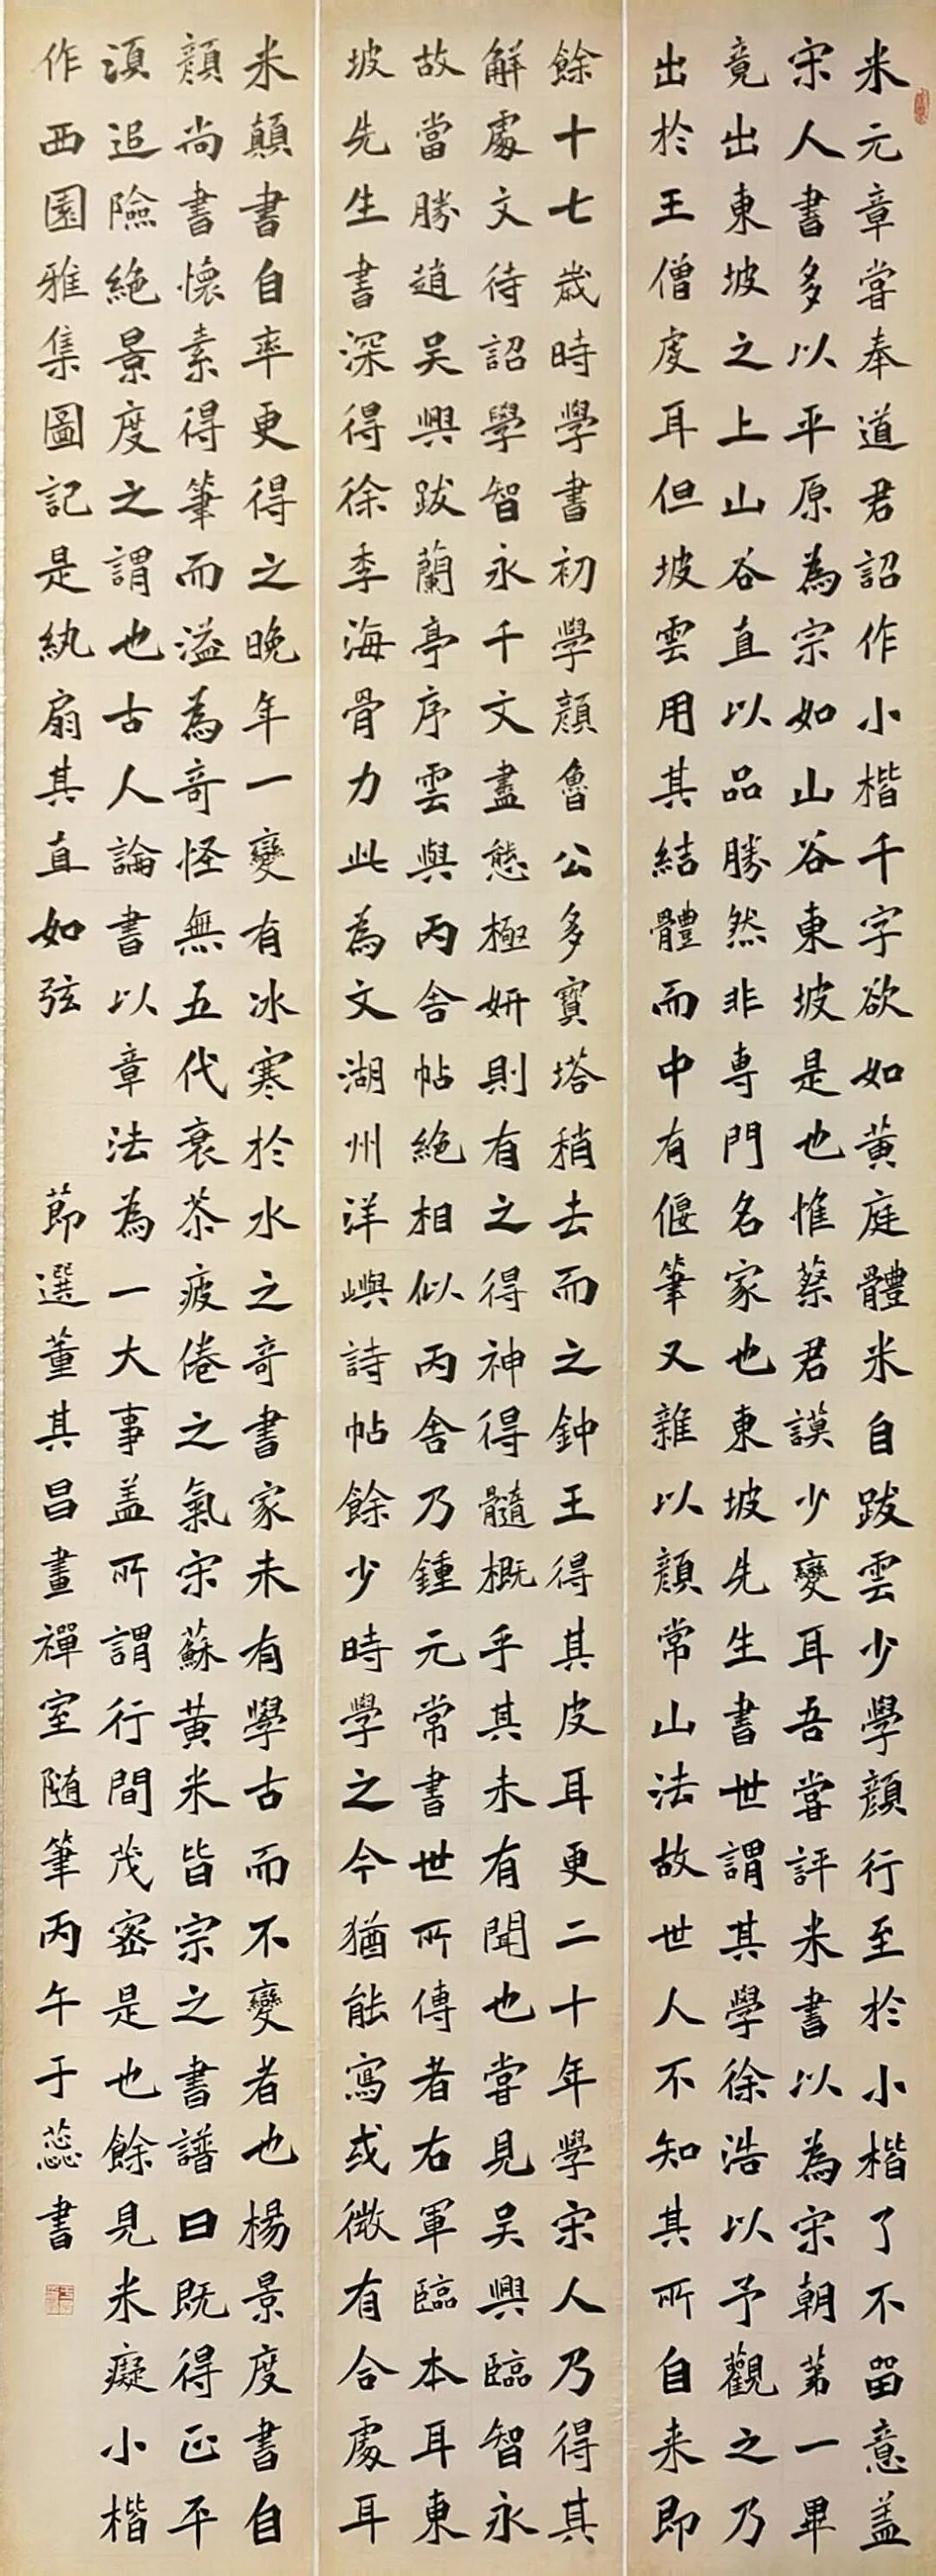 米元章嘗奉道君詔作小楷千字欲如黃庭體米自跋雲少學顏行至於小楷了不留意蓋
宋人書多以平原為宗如山谷東坡是也惟蔡君謨少變耳吾嘗評米書以為宋朝第一畢
竟出東坡之上山谷直以品勝然非專門名家也東坡先生書世謂其學徐浩以予觀之乃
出於王僧虔耳但坡雲用其結體而中有偃筆又雜以顏常山法故世人不知其所自来即
餘十七歲時學書初學顏魯公多寶塔稍去而之鍾王得其皮耳更二十年學宋人乃得其
解處文待詔學智永千文盡態極妍則有之得神得髓概乎其未有聞也嘗見吴興臨智永
故當勝趙吴興跋蘭亭序雲與丙舍帖絕相似丙舍乃鍾元常書世所傳者右軍臨本耳東
坡先生書深得徐季海骨力此為文湖州洋嶼詩帖餘少時學之今猶能寫或微有合處耳
米顛書自率更得之晚年一變有冰寒於水之奇書家未有學古而不變者也楊景度書自
顏尚書懷素得筆而溢為奇怪無五代衰苶疲倦之氣宋蘇黃米皆宗之書譜曰既得正平
須追險絕景度之謂也古人論書以章法為一大事蓋所謂行間茂密是也餘見米癡小楷
作西園雅集圖記是紈扇其直如弦
節選董其昌畫禪室随筆丙午于蕊書